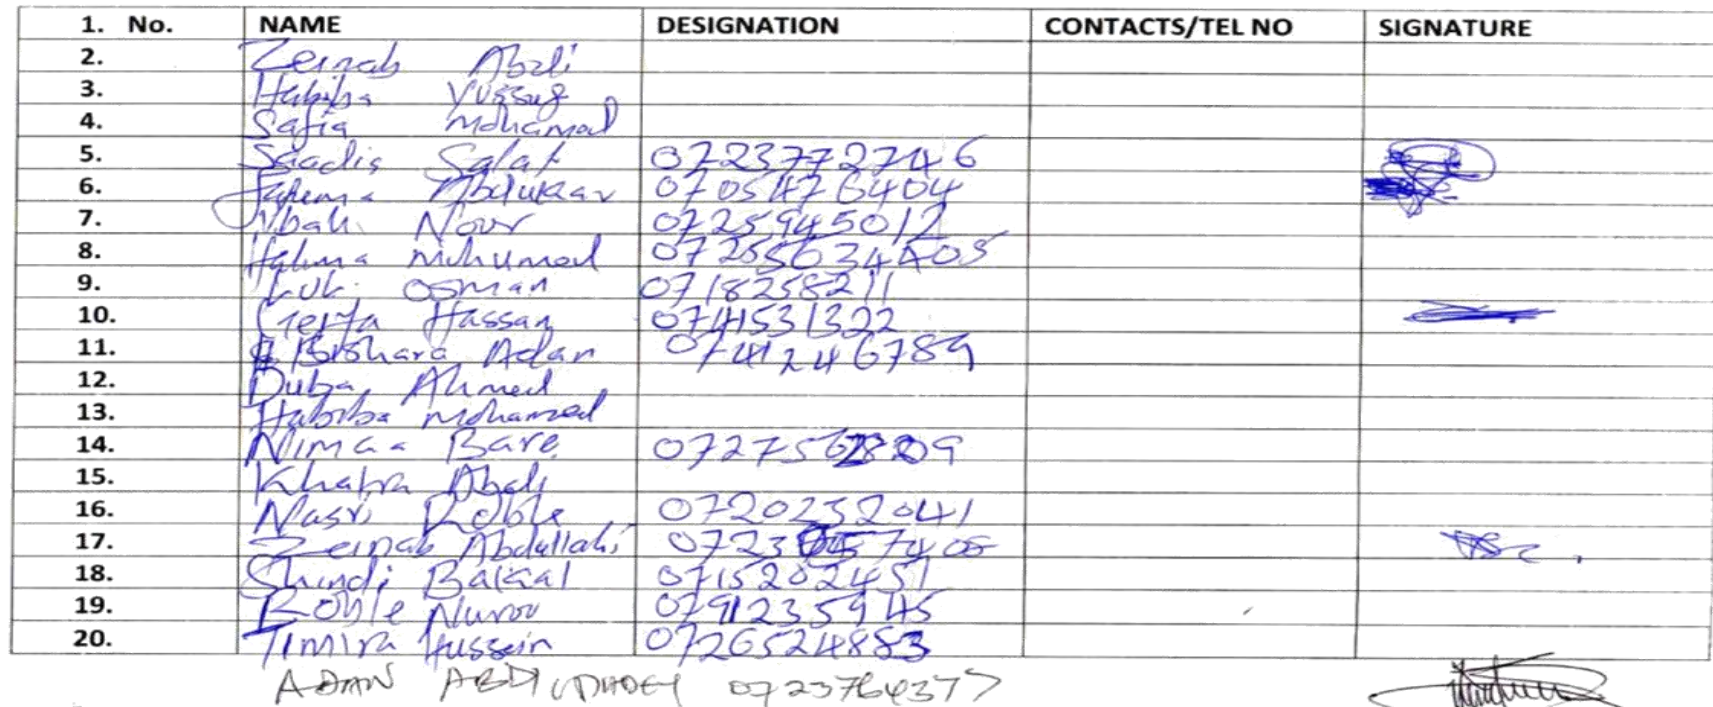 1. No. NAME DESIGNATION CONTACTS/TEL NO SIGNATURE
2. Zeinab Abdi
3. Habiba Yussuf
4. Safia Mohamed
5. Saadis Salat 0723772746
6. Abdukaar 0705476404
7. Nour 0725945012
8. Halima Muhumed
9. Osman 0718258211
10. Hassan 0741531322
11. Bishara Adan 0741246789
12. Duba Ahmed
13. Habiba Mohamed
14. Nimaa Bare
15. Khatra Abdi
16. Nasri Roble 0720232041
17. Zeinab Abdullahi
18. Shindi Bakal 0715202451
19. Roble Nunow 0791235945
20. Timira Hussein 0726524883
ADAN 0723764377